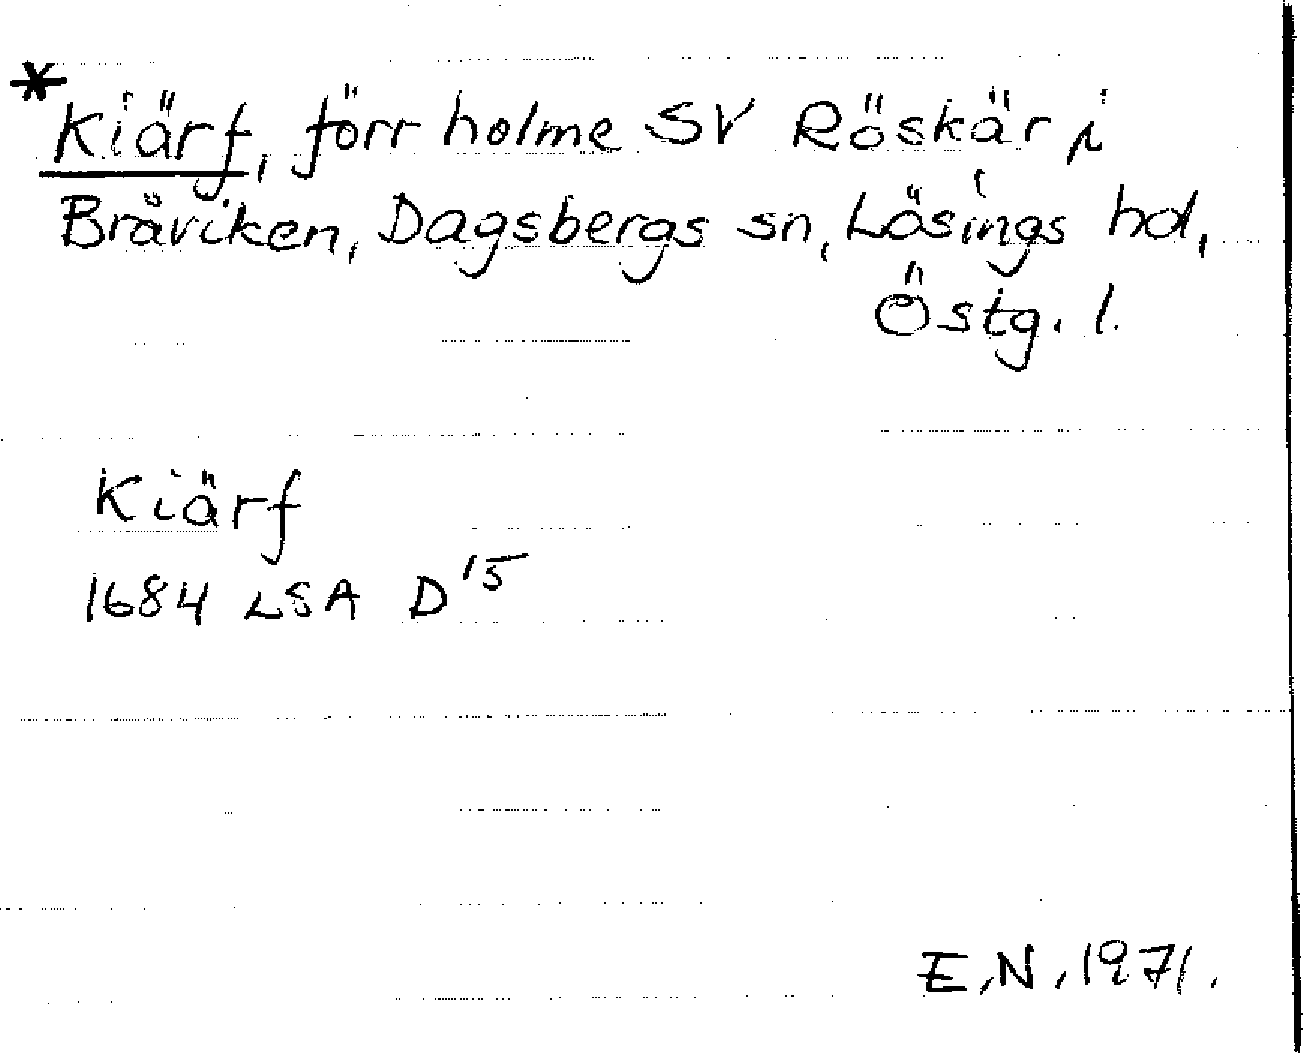 *Kiärf, förr holme SV Röskär i
Bråviken, Dagsbergs sn, Lösings hd,
Östg. l.
Kiärf
1684 LSA D15
E.N. 1971.